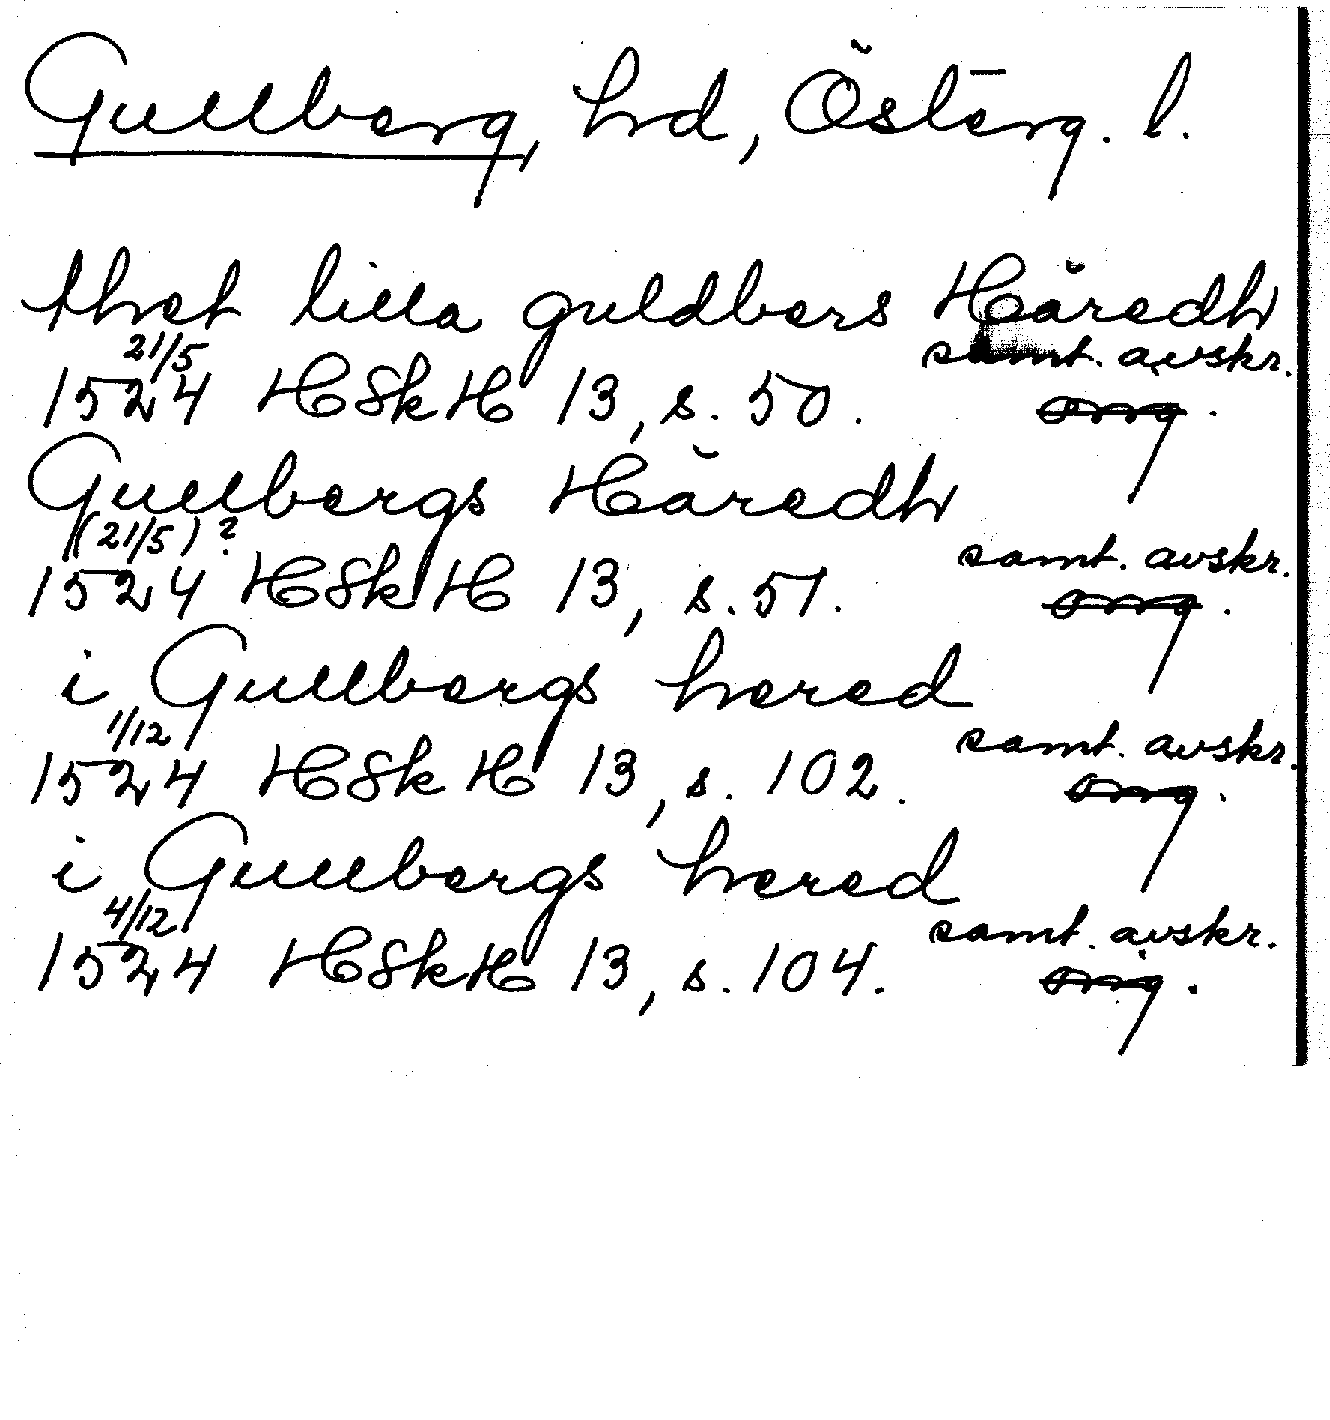 Gullberg, hd, Österg. l.
thet lilla guldbers Häredh
21/5 samt. avskr.
1524 HSkH 13, s. 50. orig.
Gullbergs Häredh
(21/5)? samt. avskr.
1524 HSkH 13, s. 51. orig.
i Gullbergs hered
1/12 samt. avskr.
1524 HSkH 13, s. 102. orig.
i Gullbergs hered
4/12 samt. avskr.
1524 HSkH 13, s. 104. orig.